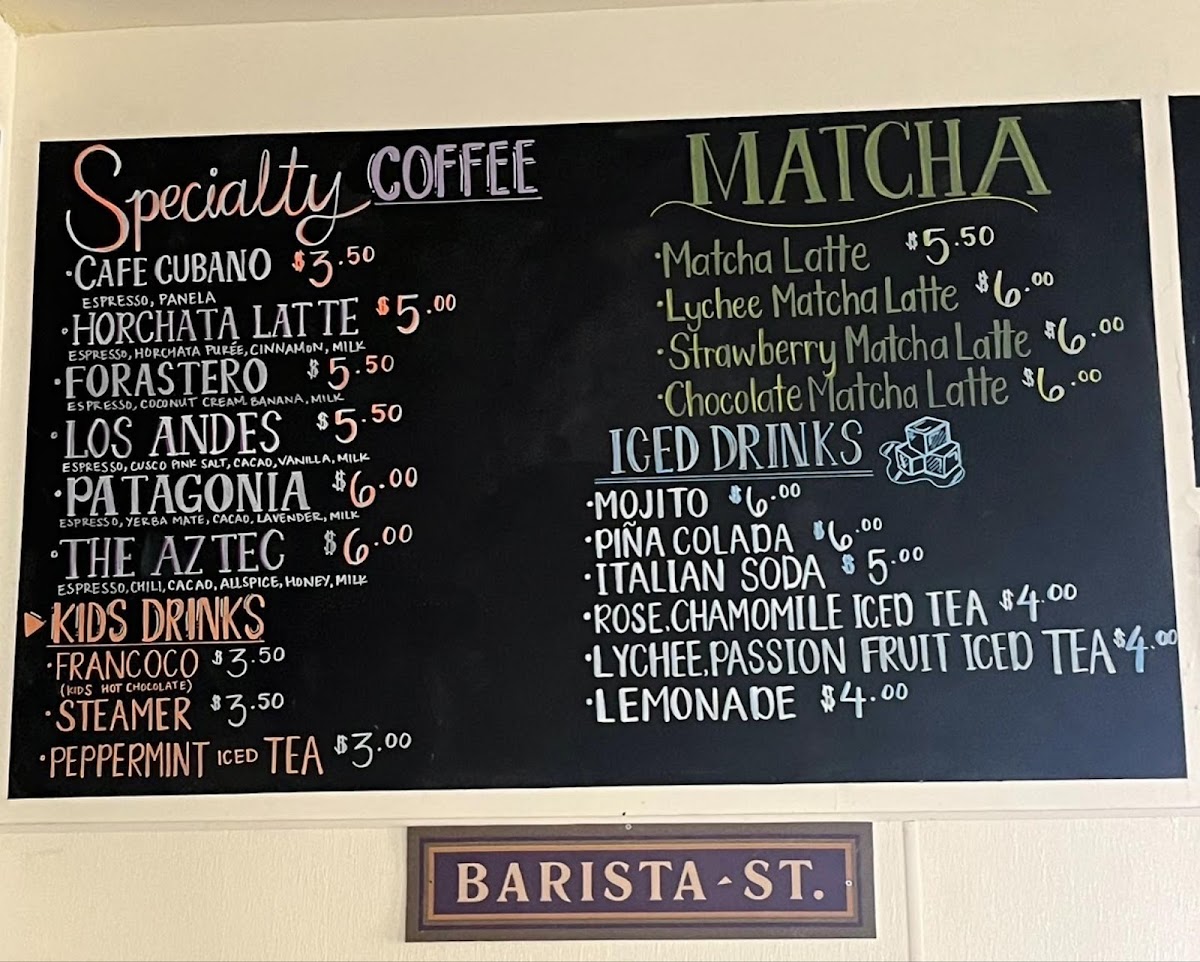 Specialty COFFEE
·CAFE CUBANO $3.50
ESPRESSO, PANELA
·HORCHATA LATTE $5.00
ESPRESSO, HORCHATA PURÉE, CINNAMON, MILK
·FORASTERO $5.50
ESPRESSO, COCONUT CREAM, BANANA, MILK
·LOS ANDES $5.50
ESPRESSO, CUSCO PINK SALT, CACAO, VANILLA, MILK
·PATAGONIA $6.00
ESPRESSO, YERBA MATE, CACAO, LAVENDER, MILK
·THE AZTEC $6.00
ESPRESSO, CHILI, CACAO, ALLSPICE, HONEY, MILK
KIDS DRINKS
·FRANCOCO $3.50
(KIDS HOT CHOCOLATE)
·STEAMER $3.50
·PEPPERMINT ICED TEA $3.00
MATCHA
·Matcha Latte $5.50
·Lychee Matcha Latte $6.00
·Strawberry Matcha Latte $6.00
·Chocolate Matcha Latte $6.00
ICED DRINKS
·MOJITO $6.00
·PIÑA COLADA $6.00
·ITALIAN SODA $5.00
·ROSE, CHAMOMILE ICED TEA $4.00
·LYCHEE, PASSION FRUIT ICED TEA $4.00
·LEMONADE $4.00
BARISTA - ST.